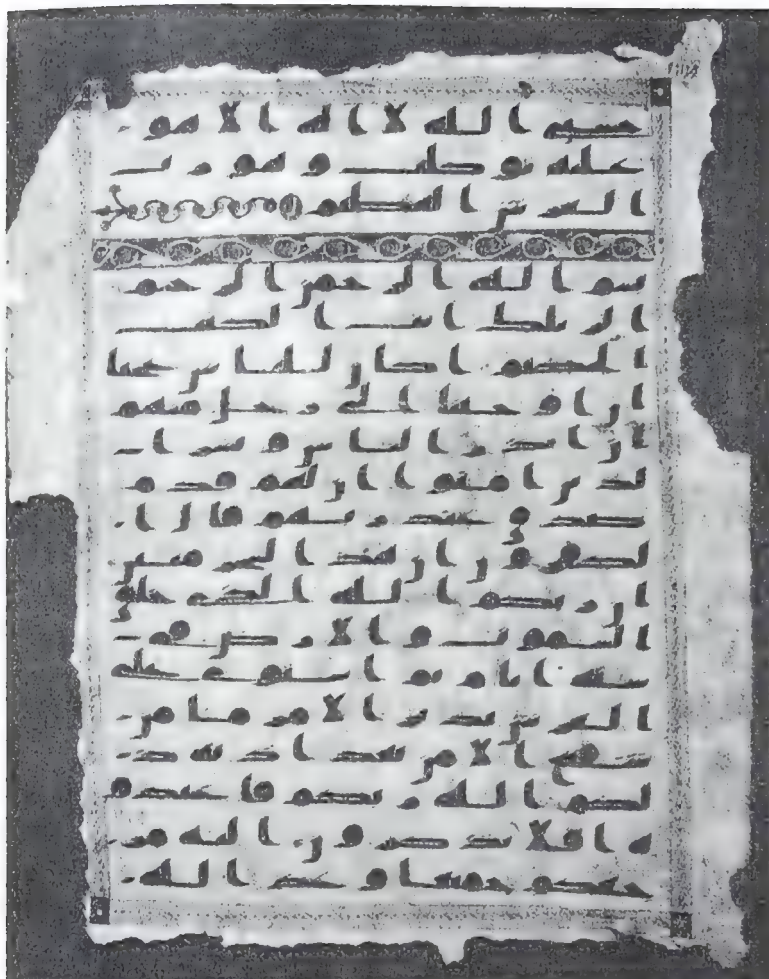 حسبى الله لا اله الا هو
عليه توكلت وهو رب
العرش العظيم
بسم الله الرحمن الرحيم
الر تلك ايت الكتب
الحكيم اكان للناس عجبا
ان اوحينا الى رجل منهم
ان انذر الناس وبشر ا
لذين امنوا ان لهم قدم
صدق عند ربهم قال ا
لكفرون ان هذا لسحر مبين
ان ربكم الله الذى خلق
السموت والارض فى
سته ايام ثم استوى على
العرش يدبر الامر ما من
شفيع الا من بعد اذنه ذ
لكم الله ربكم فاعبدو
ه افلا تذكرون اليه مر
جعكم جميعا وعد الله